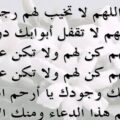 اللهم لا تخيب لهم رج
هم لا تقفل أبوابك دو
هم كن لهم ولا تكن ع
م كن لهم ولا تكن عل
ك وجودك يا أرحم ا
هذا الدعاء ومنك ا